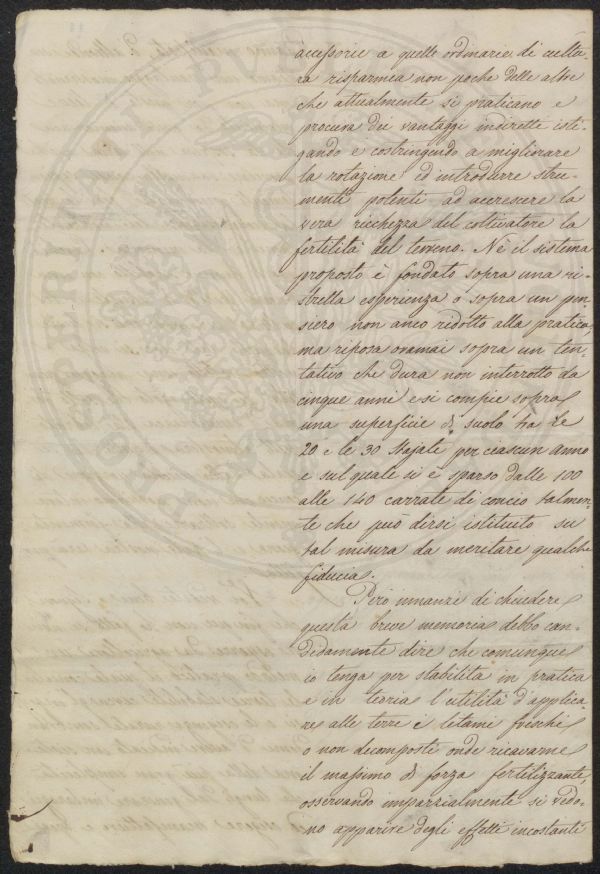 accessorie a quelle ordinarie di cultu-
ra risparmia non poche delle altre
che attualmente si praticano e
procura dei vantaggi indiretti isti-
gando e costringendo a migliorare
la rotazione ed introdurre stru-
menti potenti ad accrescere la
vera ricchezza del coltivatore la
fertilità del terreno. Nè il sistema
proposto è fondato sopra una ri-
stretta esperienza o sopra un pen-
siero non anco ridotto alla pratica,
ma riposa oramai sopra un ten-
tativo che dura non interrotto da
cinque anni e si compie sopra
una superficie di suolo tra le
20 e le 30 stajate per ciascun anno
e sul quale si è sparso dalle 100
alle 140 carrate di concio talmen-
te che può dirsi istituito su
tal misura da meritare qualche
fiducia.
Però innanzi di chiudere
questa breve memoria debbo can-
didamente dire che comunque
io tenga per stabilita in pratica
e in teoria l'utilità d'applica-
re alle terre i letami freschi
o non decomposti onde ricavarne
il massimo di forza fertilizzante,
osservando imparzialmente si vedo-
no apparire degli effetti incostanti